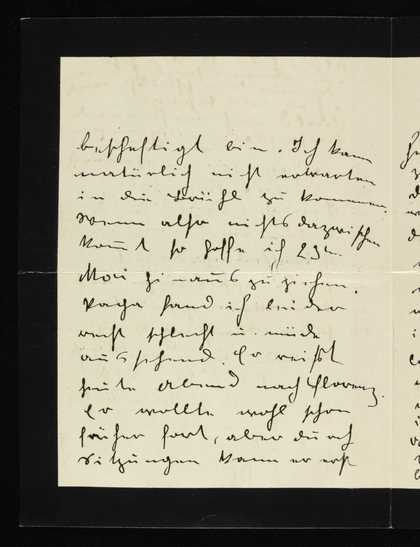 beschäftigt bin. Ich kann
natürlich nicht erwarten
in die Brühl zu kommen.
Wenn also nichts dazwischen
kommt so hoffe ich 29ten
Mai hinaus zu ziehen.
Papa fand ich leider
recht schlecht u. müde
aussehend. Er reißt
heute Abend nach Florenz.
Er wollte wohl schon
früher fort, aber durch
Sitzungen kann er erst